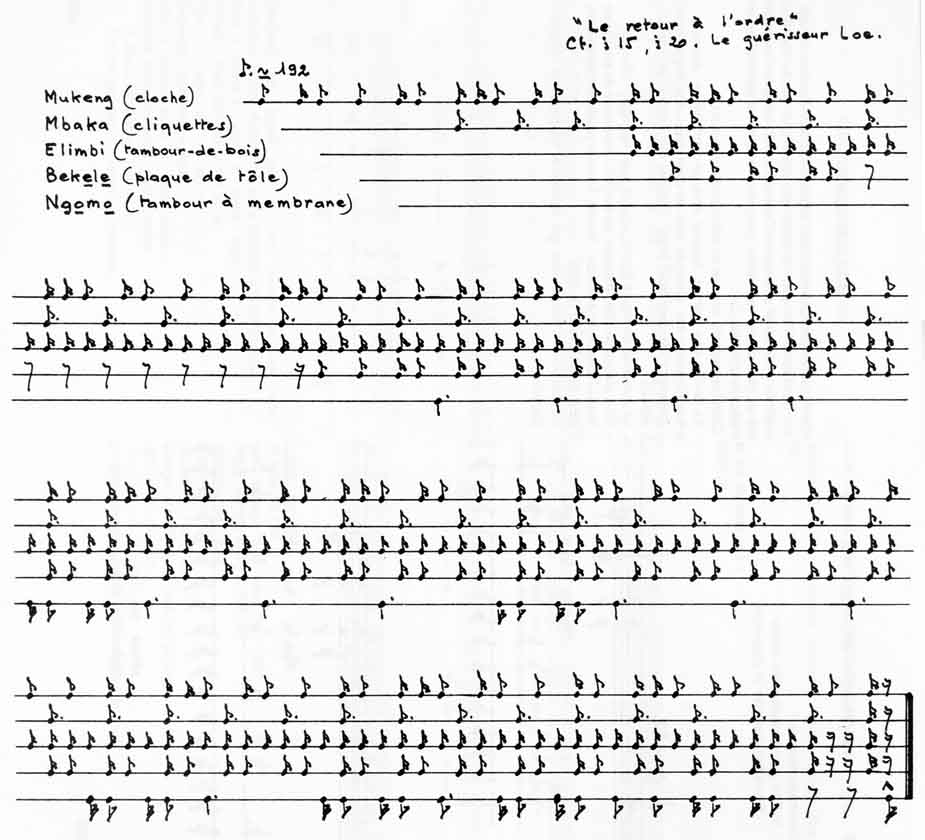 "Le retour à l'ordre"
Cf. j 15, j 20. Le guérisseur Loe.
♪. ≃ 192
Mukeng (cloche)
Mbaka (cliquettes)
Elimbi (tambour-de-bois)
Bekele (plaque de tôle)
Ngomo (tambour à membrane)